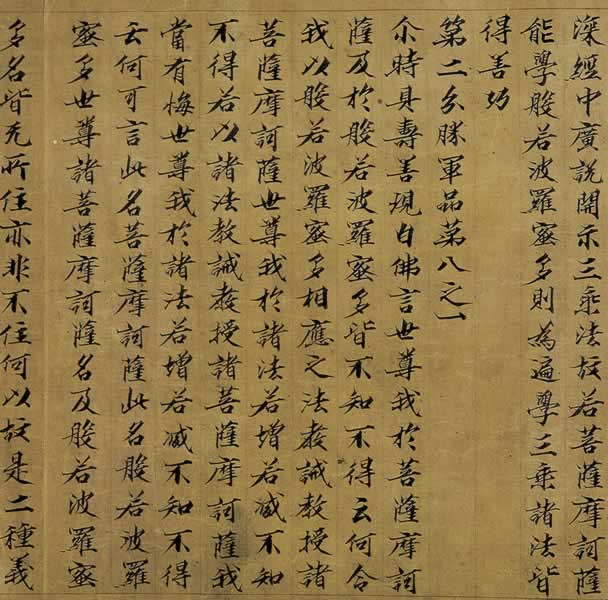 深經中廣說開示三乘法故若菩薩摩訶薩
能學般若波羅蜜多則為遍學三乘諸法皆
得善巧
第二分勝軍品第八之一
尒時具壽善現白佛言世尊我於菩薩摩訶
薩及於般若波羅蜜多皆不知不得云何令
我以般若波羅蜜多相應之法教誡教授諸
菩薩摩訶薩世尊我於諸法若增若減不知
不得若以諸法教誡教授諸菩薩摩訶薩我
當有悔世尊我於諸法若增若減不知不得
云何可言此名菩薩摩訶薩此名般若波羅
蜜多世尊諸菩薩摩訶薩名及般若波羅蜜
多名皆无所住亦非不住何以故是二種義